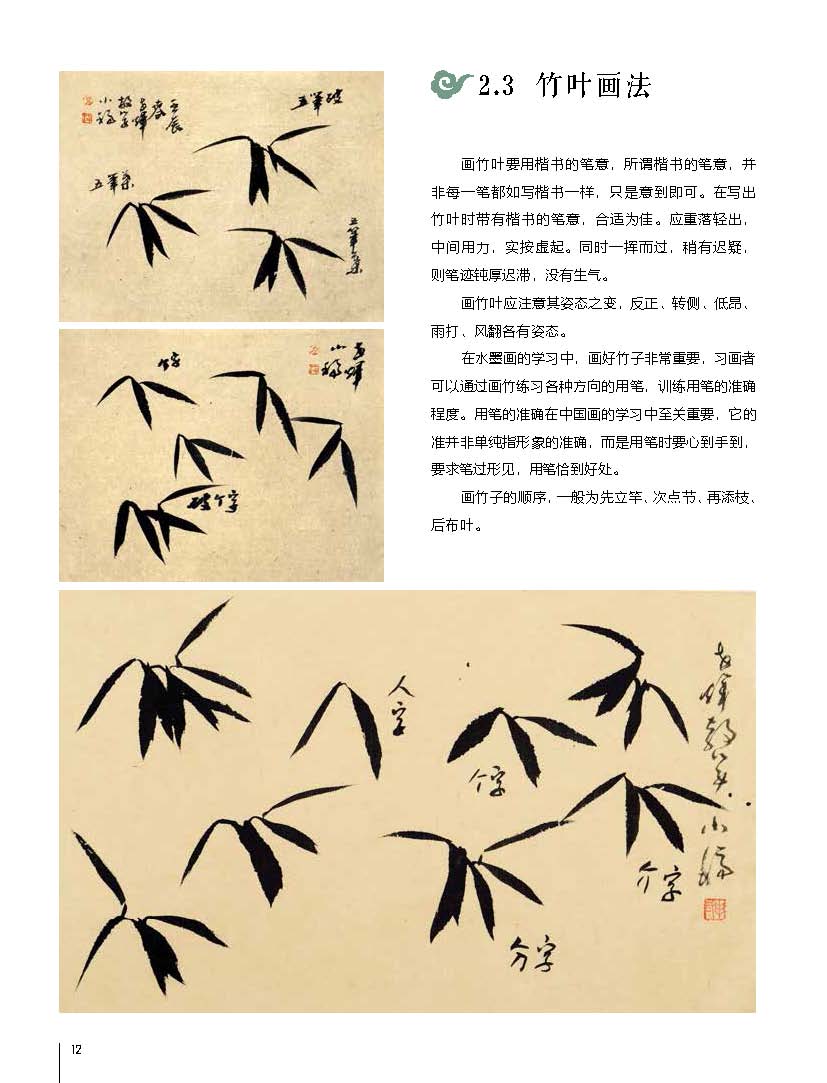 2.3 竹叶画法
画竹叶要用楷书的笔意，所谓楷书的笔意，并
非每一笔都如写楷书一样，只是意到即可。在写出
竹叶时带有楷书的笔意，合适为佳。应重落轻出，
中间用力，实按虚起。同时一挥而过，稍有迟疑，
则笔迹钝厚迟滞，没有生气。
画竹叶应注意其姿态之变，反正、转侧、低昂、
雨打、风翻各有姿态。
在水墨画的学习中，画好竹子非常重要，习画者
可以通过画竹练习各种方向的用笔，训练用笔的准确
程度。用笔的准确在中国画的学习中至关重要，它的
准并非单纯指形象的准确，而是用笔时要心到手到，
要求笔过形见，用笔恰到好处。
画竹子的顺序，一般为先立竿、次点节、再添枝、
后布叶。
壬辰
小稿
五笔破
五笔
个字
小稿
破个字
人字
个字
介字
分字
小稿
12